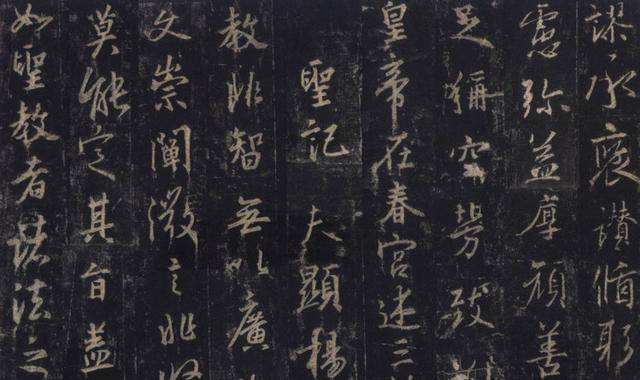 謬承褒讚循躬
慮弥益厚顔善
足稱空勞致
皇帝在春宮述三
聖記 夫顯揚
教非智無以廣
文崇闡微言非賢
莫能定其旨蓋
如聖教者諸法之